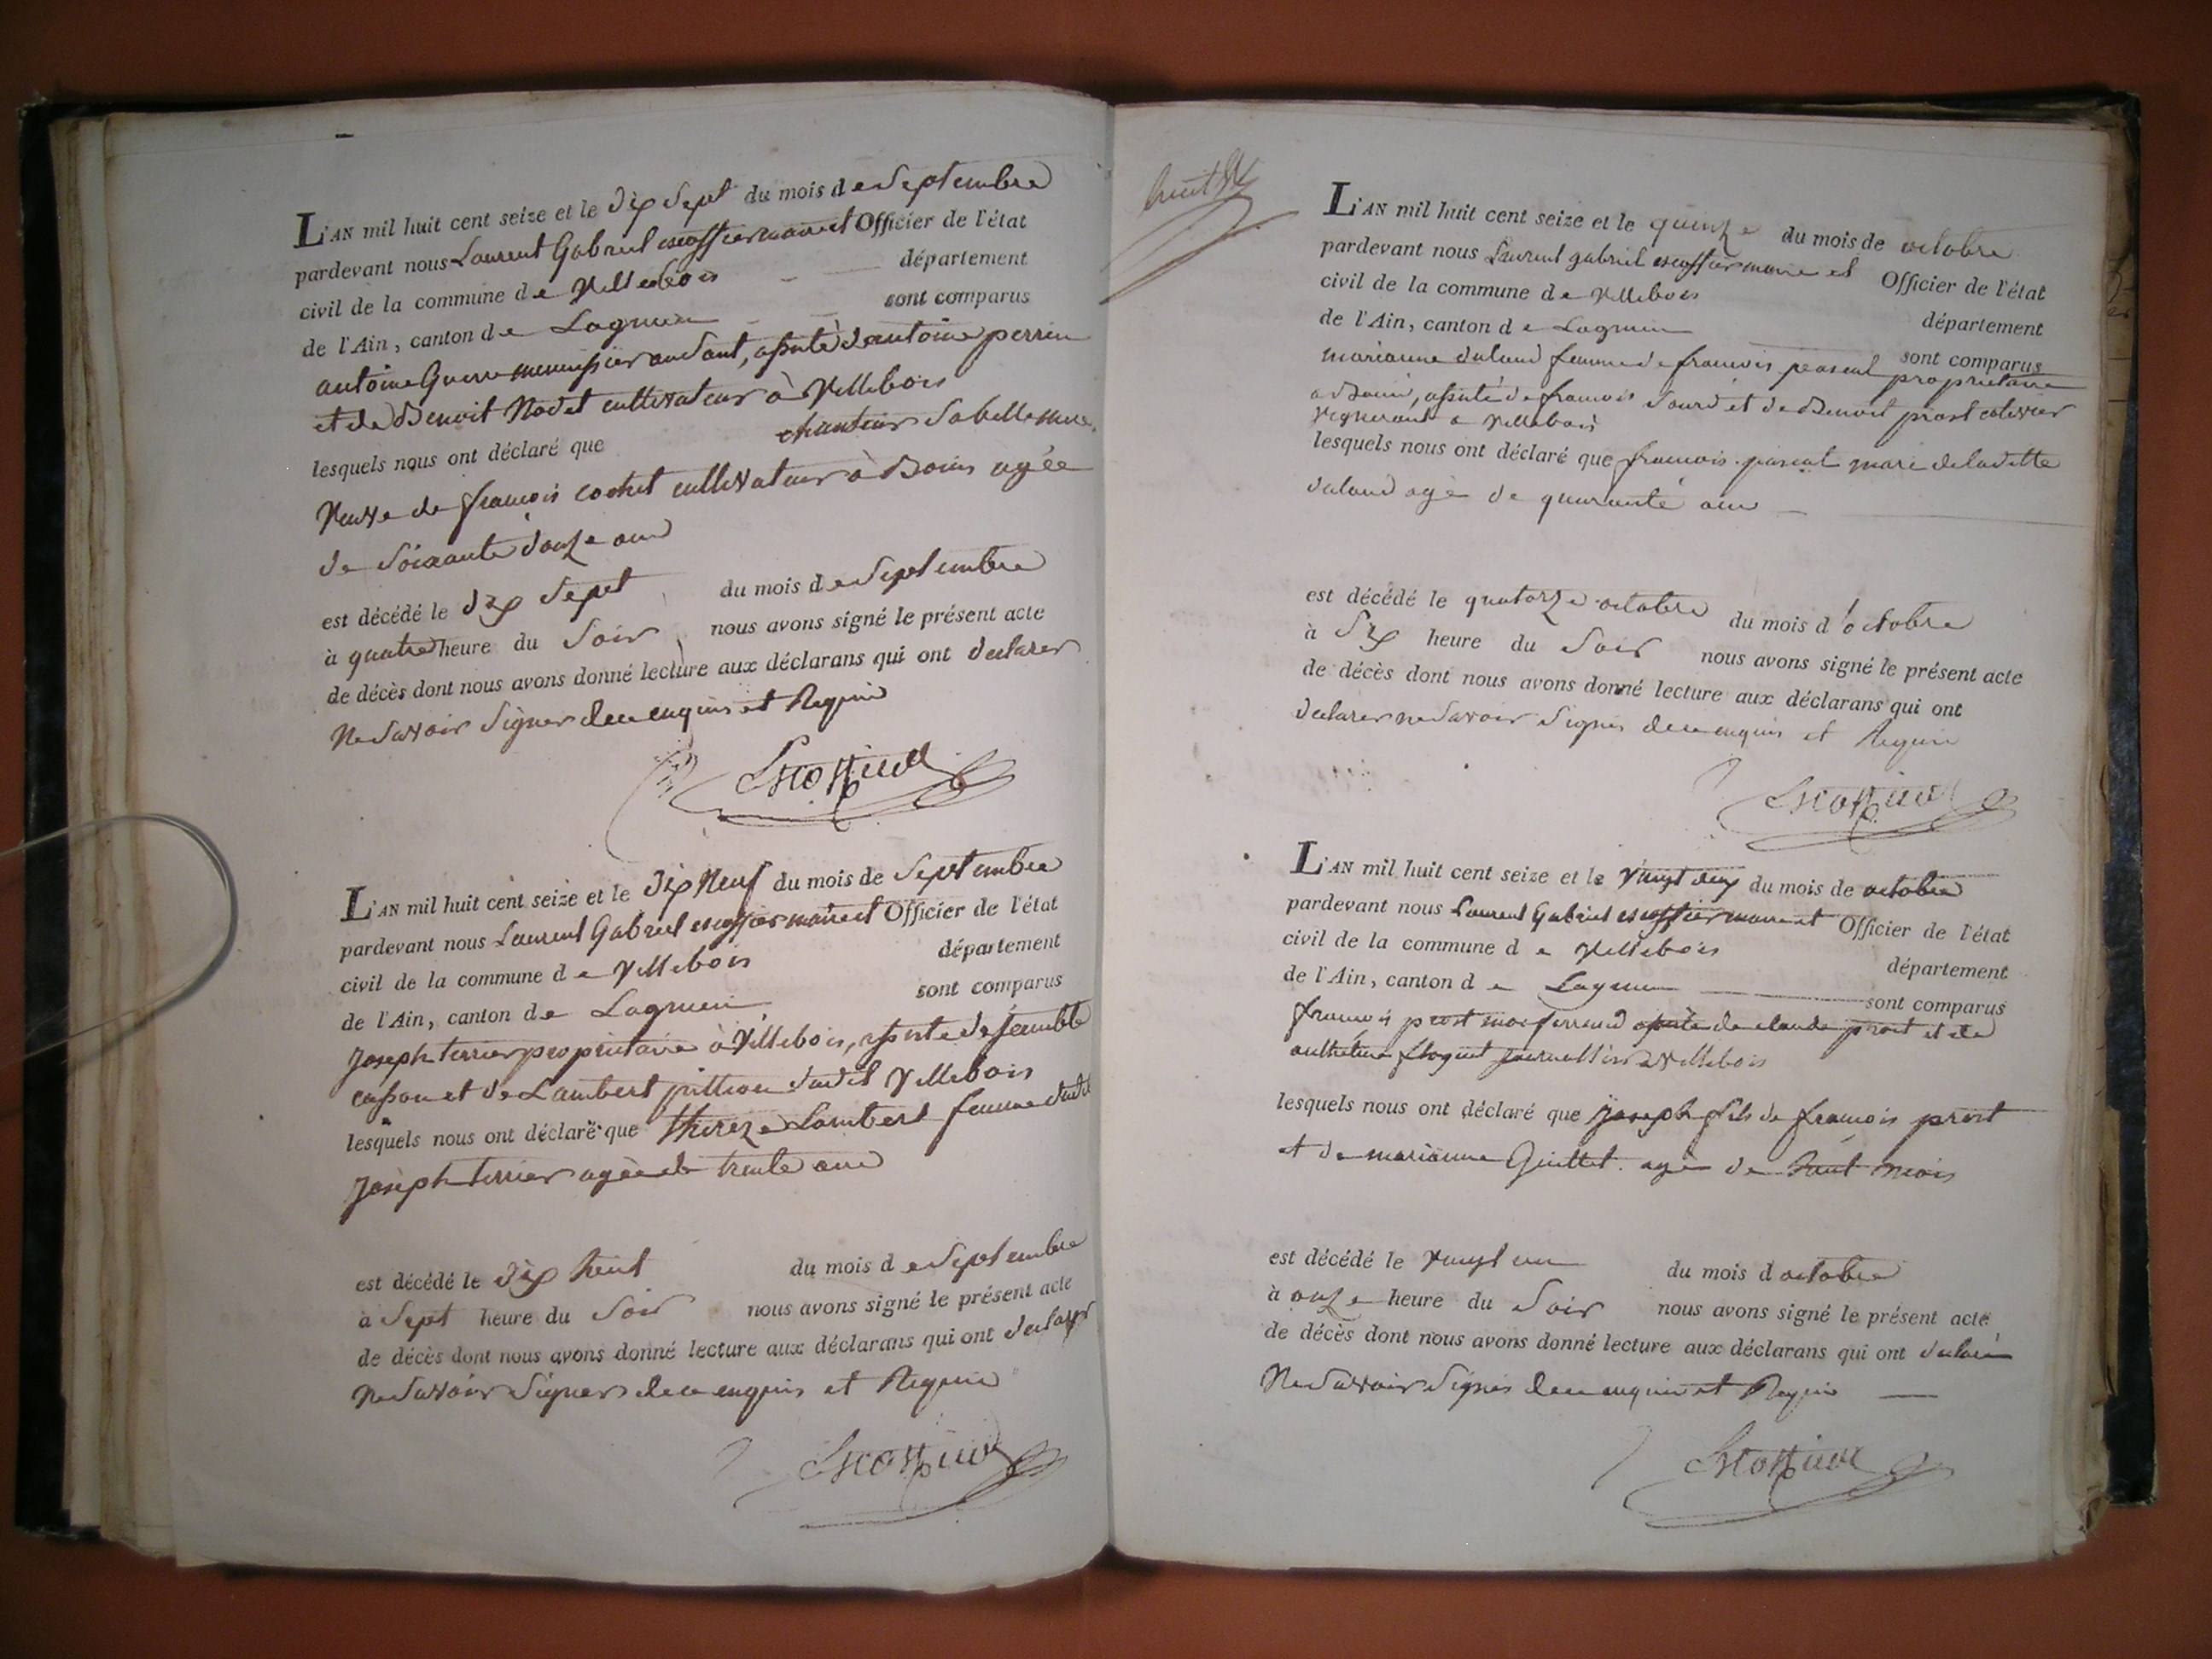 L'AN mil huit cent seize et le dix Sept du mois de Septembre
pardevant nous Laurent Gabriel escoffier maire et Officier de l'état
civil de la commune de Villebois département
de l'Ain, canton de Lagnieu sont comparus
antoine Guerre, assisté de antoine perrin
et de Benoit Nodet cultivateur à Villebois
lesquels nous ont déclaré que
Veuve de françois cochet cultivateur à Bouis agée
de Soixante douze ans
est décédé le dix Sept du mois de Septembre
à quatre heure du Soir nous avons signé le présent acte
de décès dont nous avons donné lecture aux déclarans qui ont declarer
Ne Savoir Signer de ce enquis et Requis
Escoffier
L'AN mil huit cent seize et le dix Neuf du mois de Septembre
pardevant nous Laurent Gabriel escoffier maire et Officier de l'état
civil de la commune de Villebois département
de l'Ain, canton de Lagnieu sont comparus
joseph terrier propriétaire à Villebois, assisté de
et de Lambert dudit Villebois
lesquels nous ont déclaré que thereze Lambert femme dudit
joseph terrier agée de trente ans
est décédé le dix huit du mois de Septembre
à Sept heure du Soir nous avons signé le présent acte
de décès dont nous avons donné lecture aux déclarans qui ont declarer
Ne Savoir Signer de ce enquis et Requis
Escoffier
huit
L'AN mil huit cent seize et le quinze du mois de octobre
pardevant nous Laurent gabriel escoffier maire et Officier de l'état
civil de la commune de Villebois département
de l'Ain, canton de Lagnieu sont comparus
marianne femme de francois pascal propriétaire
assisté de francois et de Benoit prost
Vigneront a Villebois
lesquels nous ont déclaré que francois pascal mari de laditte
agé de quarante ans
est décédé le quatorze octobre du mois d'octobre
à Six heure du Soir nous avons signé le présent acte
de décès dont nous avons donné lecture aux déclarans qui ont
declarer ne Savoir Signer de ce enquis et Requis
Escoffier
L'AN mil huit cent seize et le Vingt deux du mois de octobre
pardevant nous Laurent Gabriel escoffier maire et Officier de l'état
civil de la commune de Villebois département
de l'Ain, canton de Lagnieu sont comparus
francois prost assisté de claude prost et de
journallier a Villebois
lesquels nous ont déclaré que joseph fils de francois prost
et de marianne Guillet agé de huit mois
est décédé le Vingt un du mois d octobre
à onze heure du Soir nous avons signé le présent acte
de décès dont nous avons donné lecture aux déclarans qui ont
Ne Savoir Signer de ce enquis et Requis
Escoffier